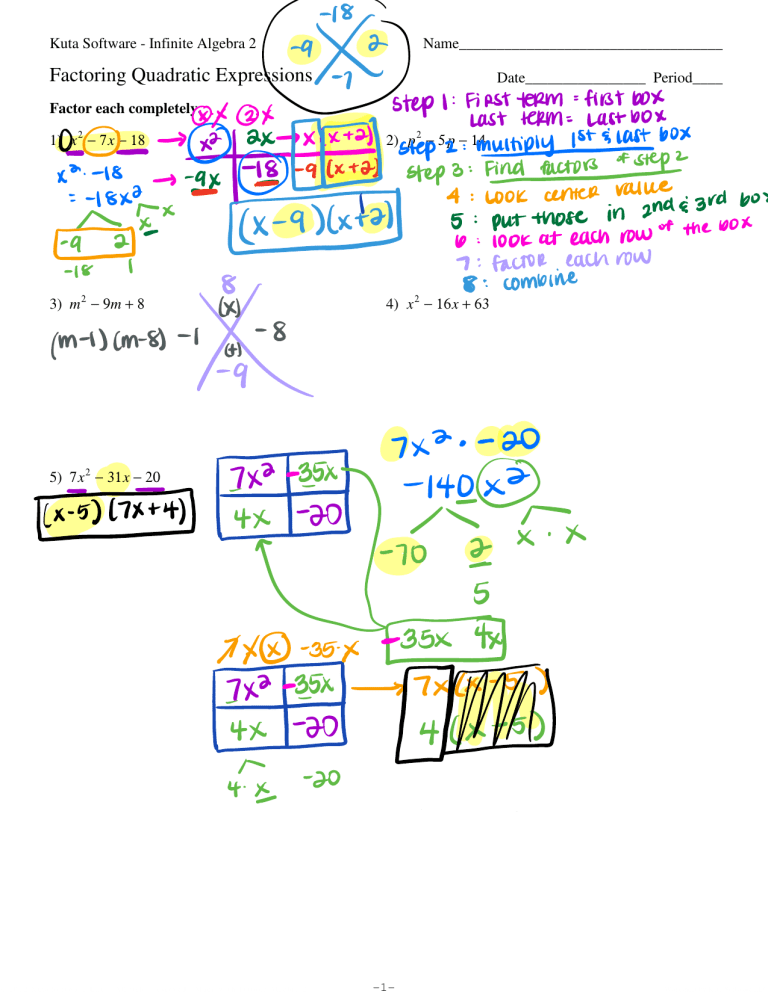 -18
-9 2
-7
Kuta Software - Infinite Algebra 2
Name
Factoring Quadratic Expressions
Date Period
Factor each completely.
x x 2 x
Step 1: First term = first box
Last term = Last box
1) x² − 7x − 18
x² 2x → x (x+2)
-9x -18 -9 (x+2)
2) p² − 5p − 14
Step 2: multiply 1st & last box
Step 3: Find factors of step 2
4: LOOK center value
5: put those in 2nd & 3rd box
6: look at each row of the box
7: factor each row
8: combine
x² · -18
= -18x²
x x
-9 2
-18 1
(x-9)(x+2)
3) m² − 9m + 8
(m-1)(m-8)
8
(x)
-1 -8
(+)
-9
4) x² − 16x + 63
5) 7x² − 31x − 20
(x-5)(7x+4)
7x² -35x
4x -20
7x² · -20
-140x²
-70 2 x · x
5
-35x 4x
7x(x) -35·x
7x² -35x → 7x(x-5)
4x -20 4(x-5)
4·x -20
-1-